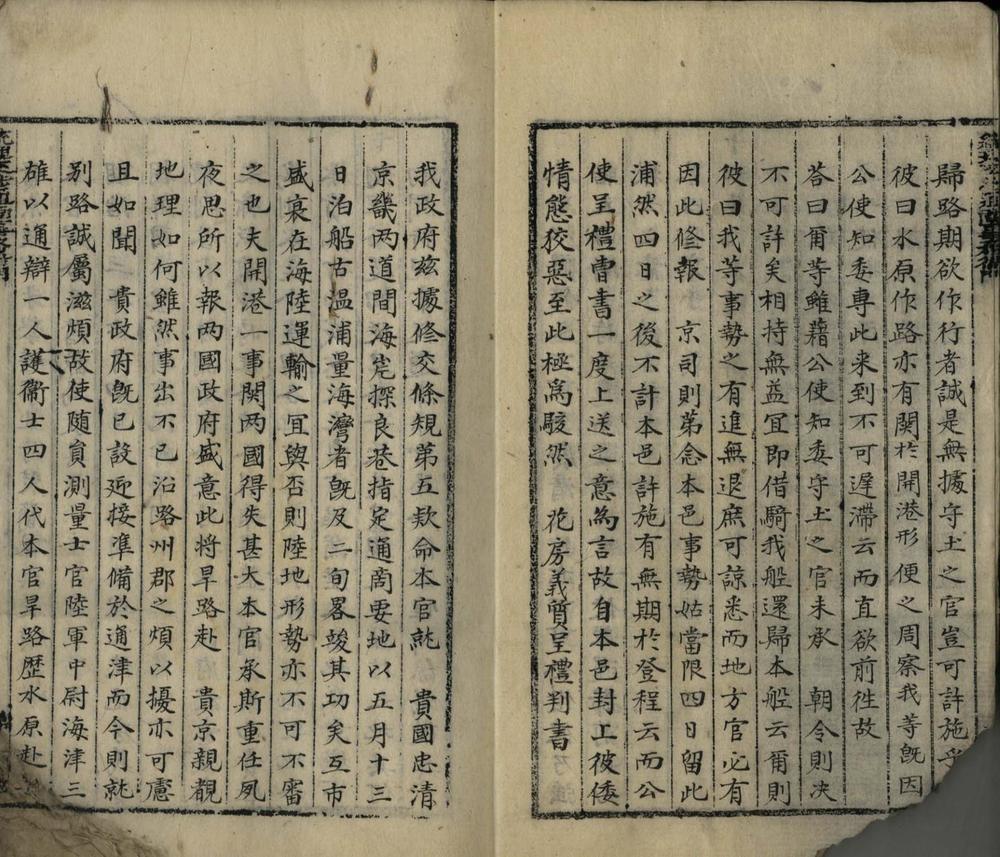 歸路期欲作行者誠是無據守土之官豈可許施乎
彼曰水原作路亦有関於開港形便之周察我等旣因
公使知委專此来到不可遅滯云而直欲前徃故
荅曰爾等雖藉公使知委守土之官未承 朝令則决
不可許矣相持無益冝即借騎我舩還歸本舩云爾則
彼曰我等事勢之有進無退庶可諒悉而地方官必有
因此修報 京司則苐念本邑事勢姑當限四日留此
浦然四日之後不計本邑許施有無期於登程云而公
使呈禮曺書一度上送之意為言故自本邑封上彼倭
情態狡惡至此極爲駭然 花房義質呈禮判書
我政府茲據修交條規苐五款命本官就 貴國忠清
京畿两道間海岸探良巷指定通商要地以五月十三
日泊船古温浦量海灣者旣及二旬畧竣其功矣互市
盛衰在海陸運輸之冝與否則陸地形勢亦不可不審
之也夫開港一事関两國得失甚大本官承斯重任夙
夜思所以報两國政府盛意此将旱路赴 貴京親觀
地理如何雖然事出不已沿路州郡之煩以擾亦可慮
且如聞 貴政府旣已設迎接准備於通津而今則就
别路誠屬滋煩故使随負測量士官陸軍中尉海津三
雄以通辯一人護衞士四人代本官旱路歴水原赴